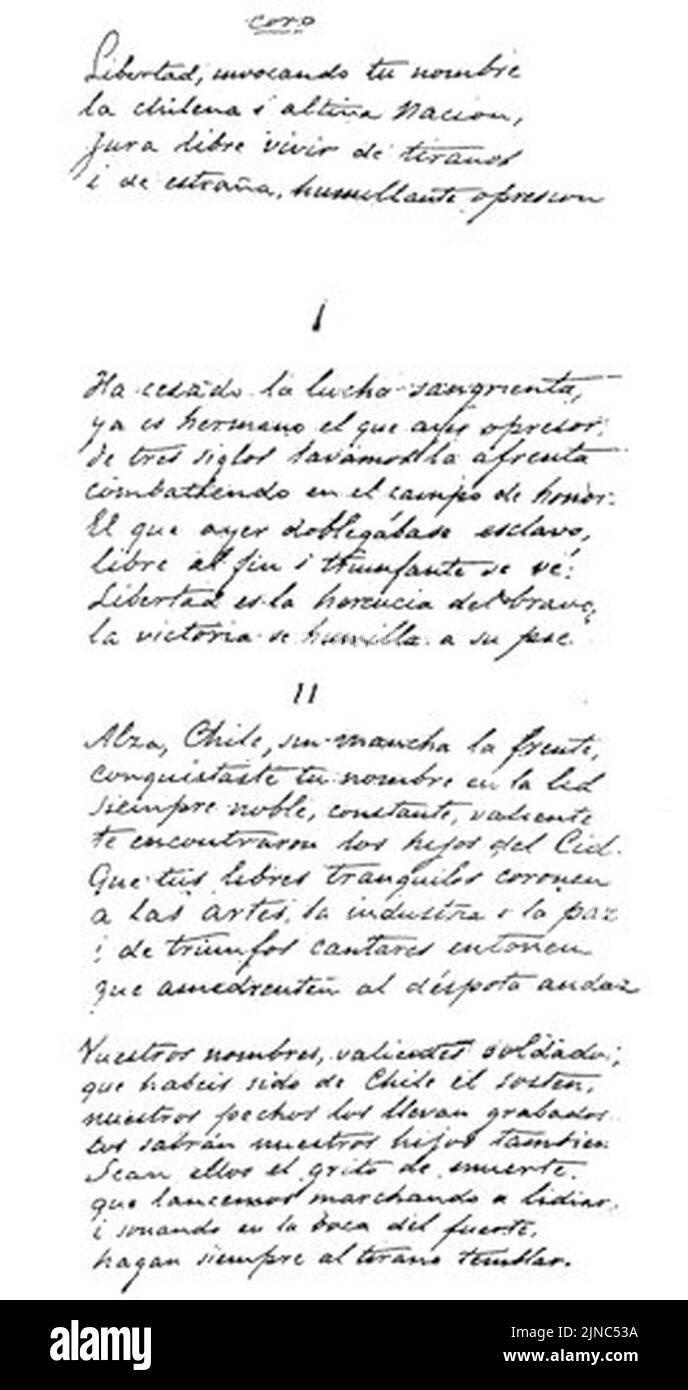 coro
Libertad, invocando tu nombre
la chilena i altiva Nacion,
Jura libre vivir de tiranos
i de estraña, humillante opresion
I
Ha cesado la lucha sangrienta,
ya es hermano el que ayer opresor;
de tres siglos lavamos la afrenta
combatiendo en el campo de honor.
El que ayer doblegábase esclavo,
libre al fin i triunfante se vé:
Libertad es la herencia del bravo,
la victoria se humilla a su pie.
II
Alza, Chile, sin mancha la frente,
conquistaste tu nombre en la lid
siempre noble, constante, valiente
te encontraron los hijos del Cid.
Que tus libres tranquilos coronen
a las artes, la industria i la paz
i de triunfos cantares entonen
que amedrenten al déspota audaz
Vuestros nombres, valientes soldados,
que habeis sido de Chile el sosten,
nuestros pechos los llevan grabados
los sabrán nuestros hijos tambien
Sean ellos el grito de muerte
que lancemos marchando a lidiar,
i sonando en la boca del fuerte,
hagan siempre al tirano temblar.
alamy
alamy
Image ID: 2JNC53A
www.alamy.com